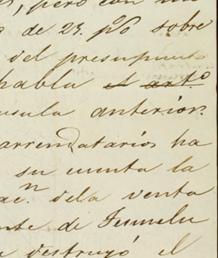 , pero con un
de 25. p% sobre
del presupuesto
habla el art.º
usula anterior.
arrendatarios ha
su cuenta la
ac.n dela venta
nte de
destruyó el